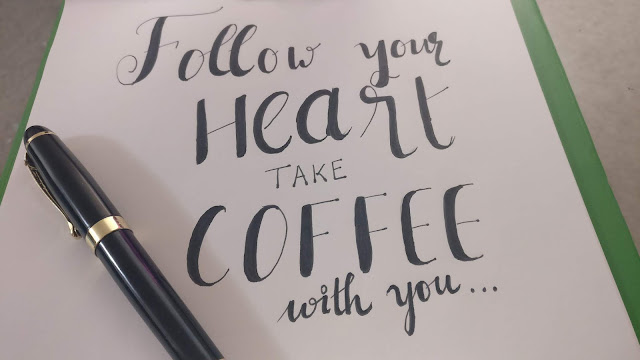 Follow your
Heart
TAKE
COFFEE
with you...